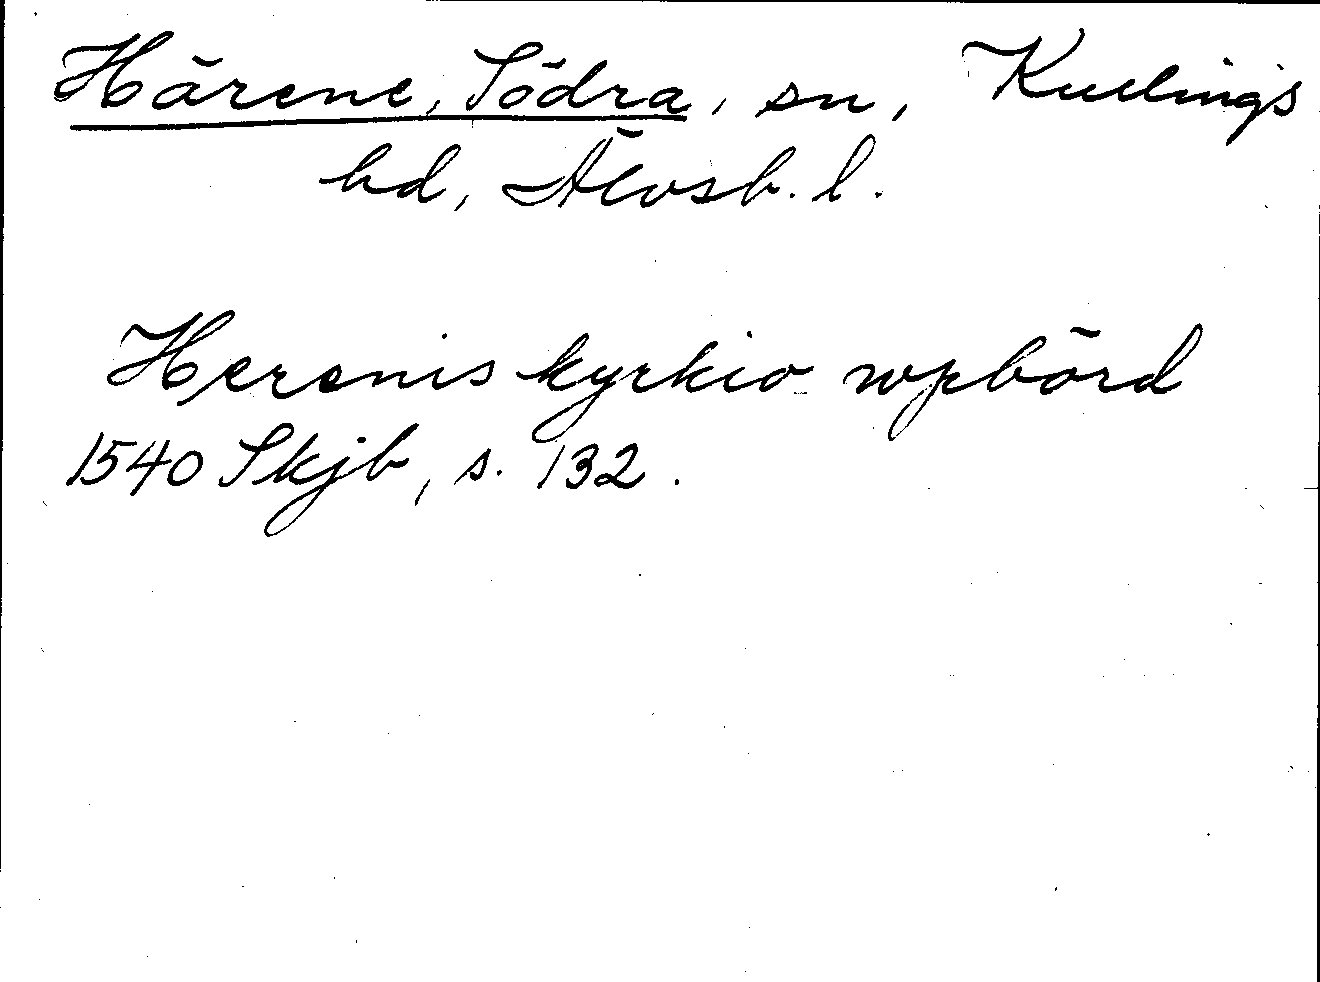 Härene, Södra, sn, Kullings
hd, Älvsb. l.
Herenis kyrkio wpbörd
1540 Skjb, s. 132.